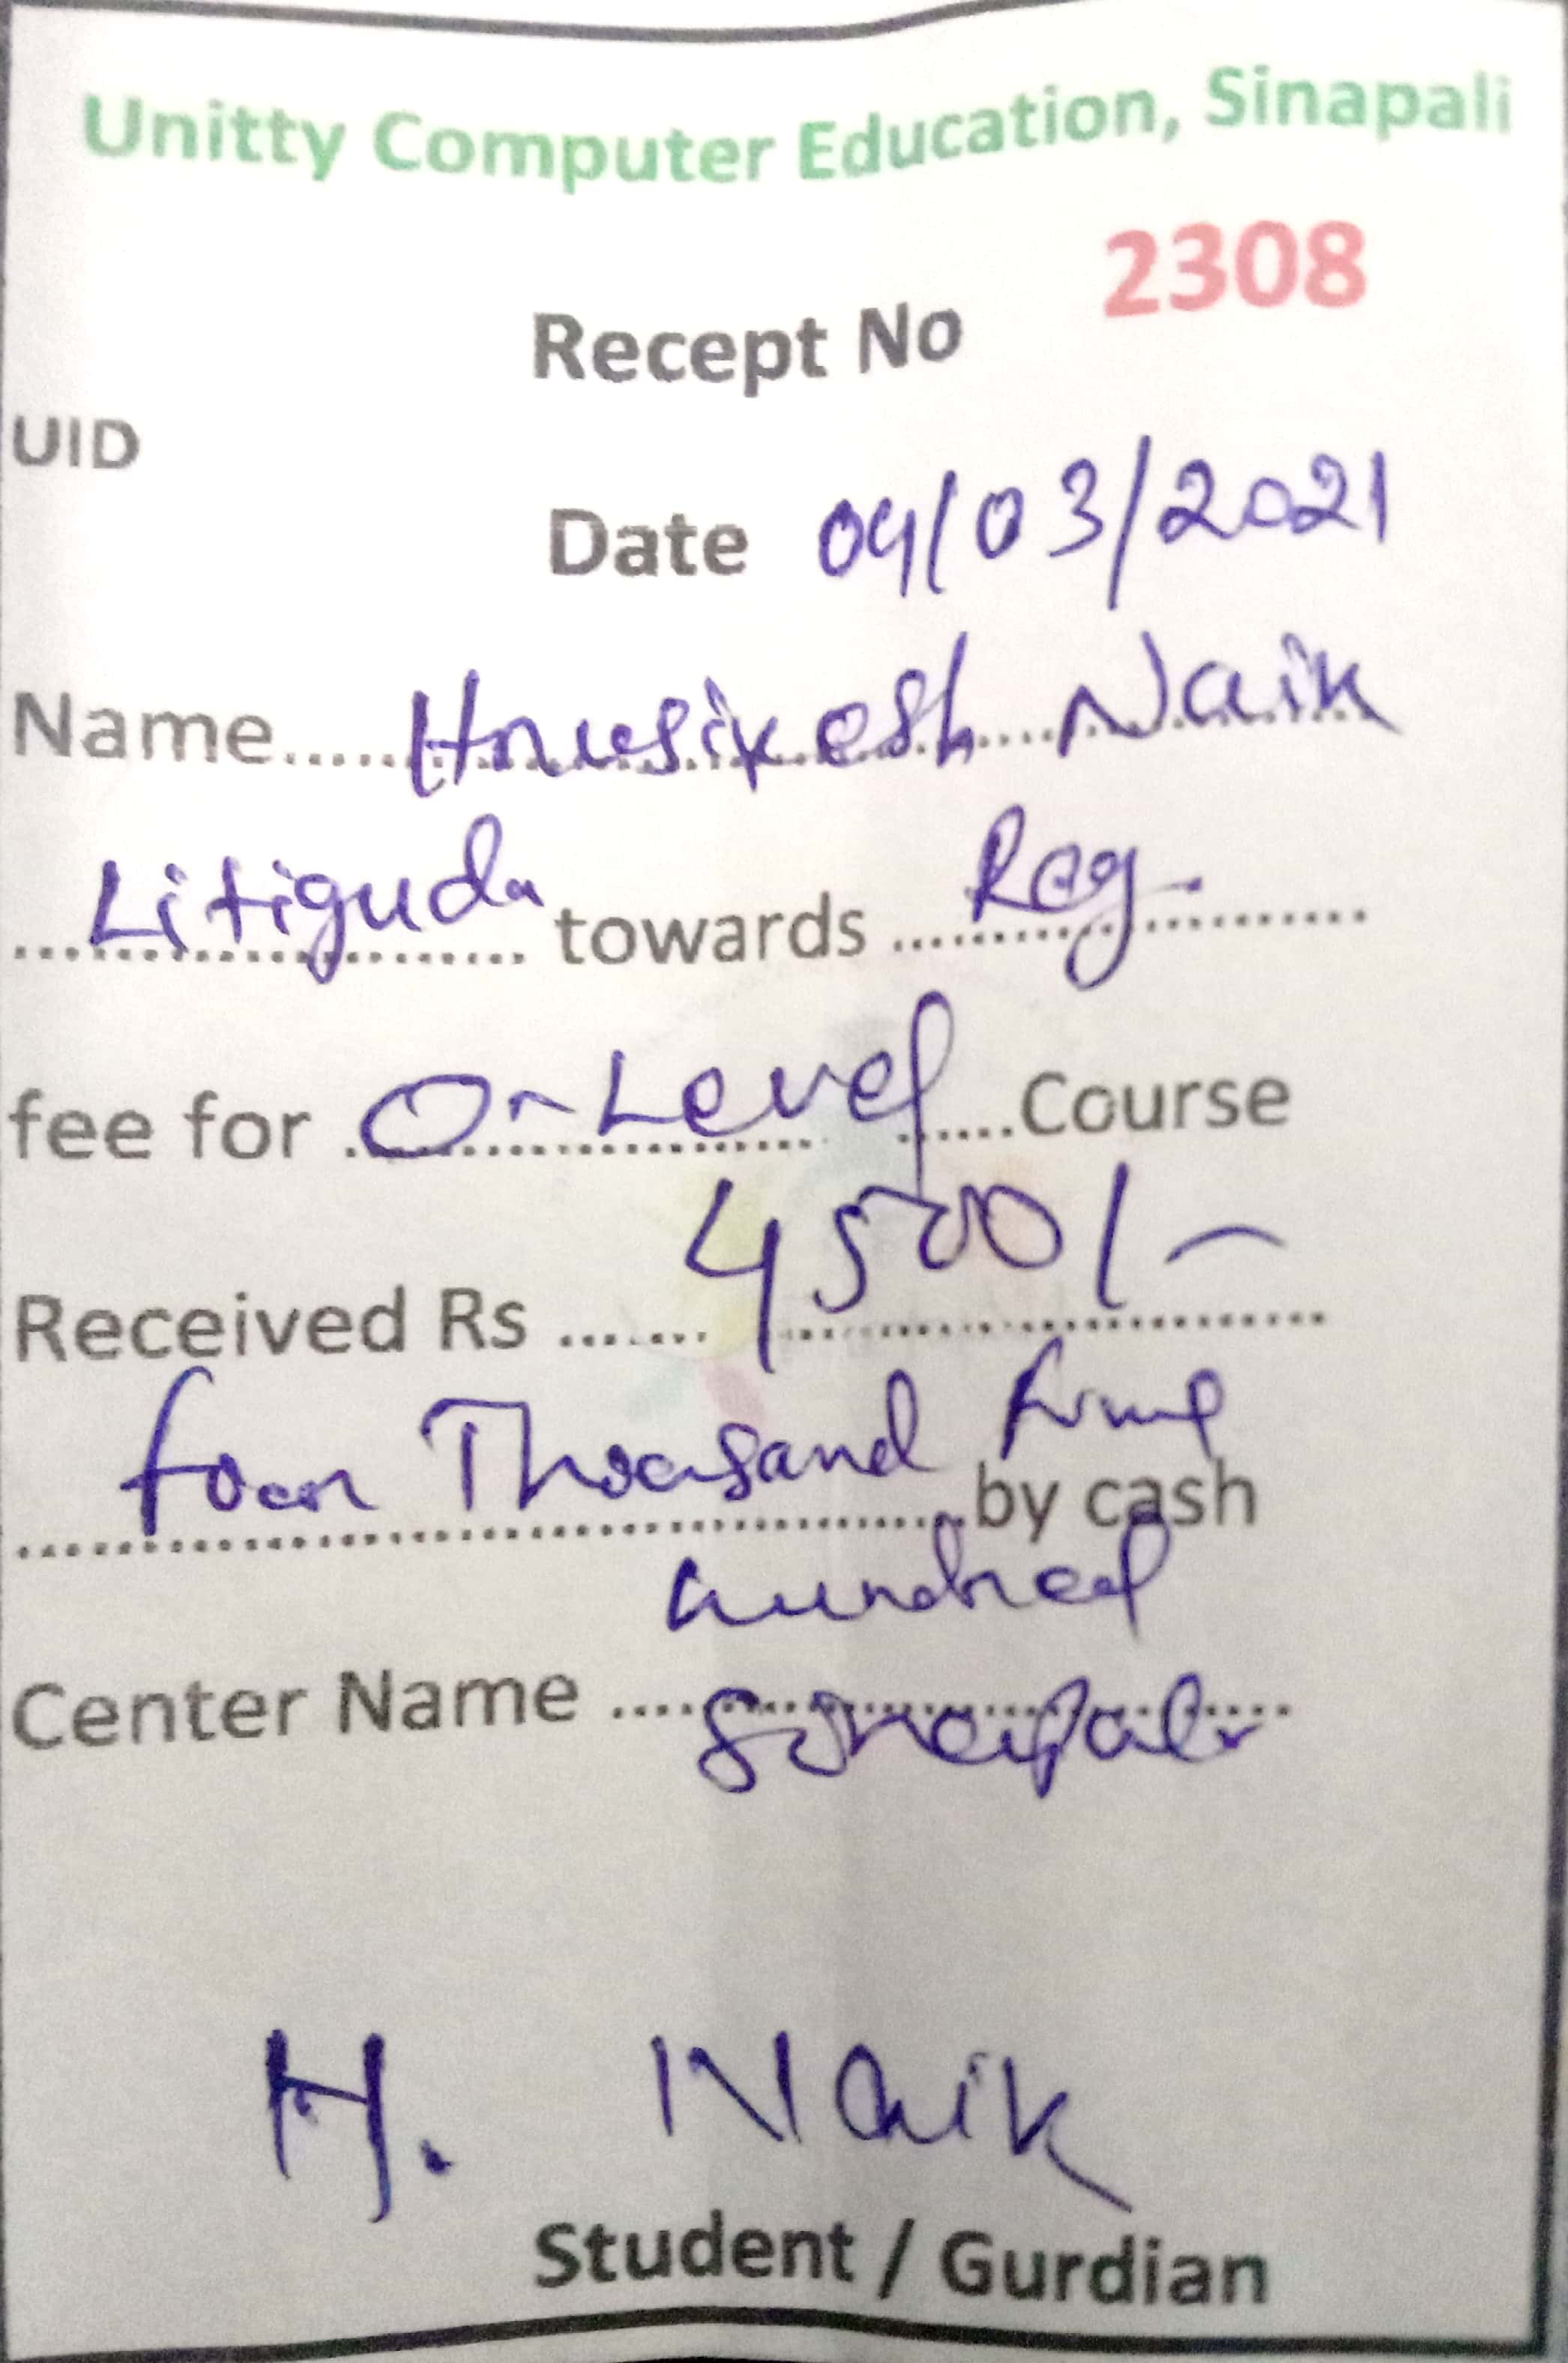 Unitty Computer Education, Sinapali
2308
Recept No
UID
Date 04/03/2021
Name..... Hrusikesh Naik
Litiguda towards Reg.
fee for O-Level Course
Received Rs 4500/-
four Thousand five
by cash
hundred
Center Name Sinapali
H. Naik
Student / Gurdian